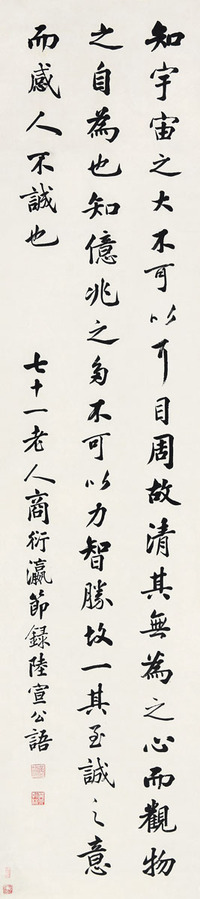 知宇宙之大不可以耳目周故清其無為之心而觀物
之自為也知億兆之多不可以力智勝故一其至誠之意
而感人不誠也
七十一老人商衍瀛節録陸宣公語